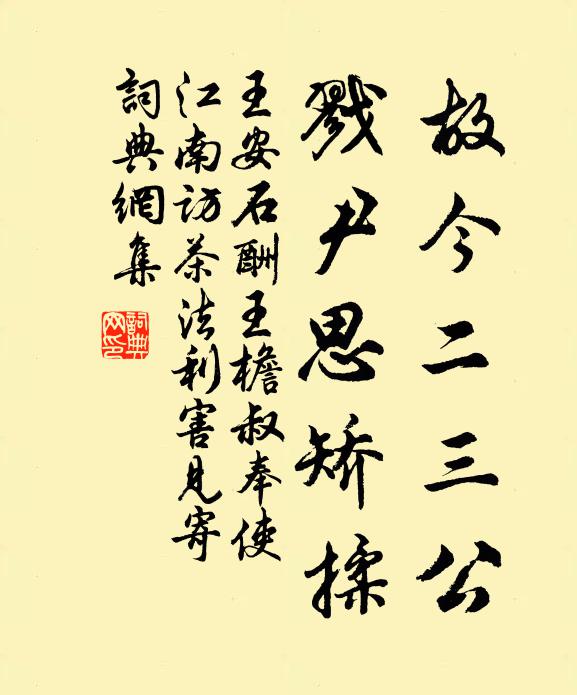 故今二三公
戮力思矯揉
王安石酬王檐叔奉使
江南訪茶法利害見寄
詞典網集
詞典网印